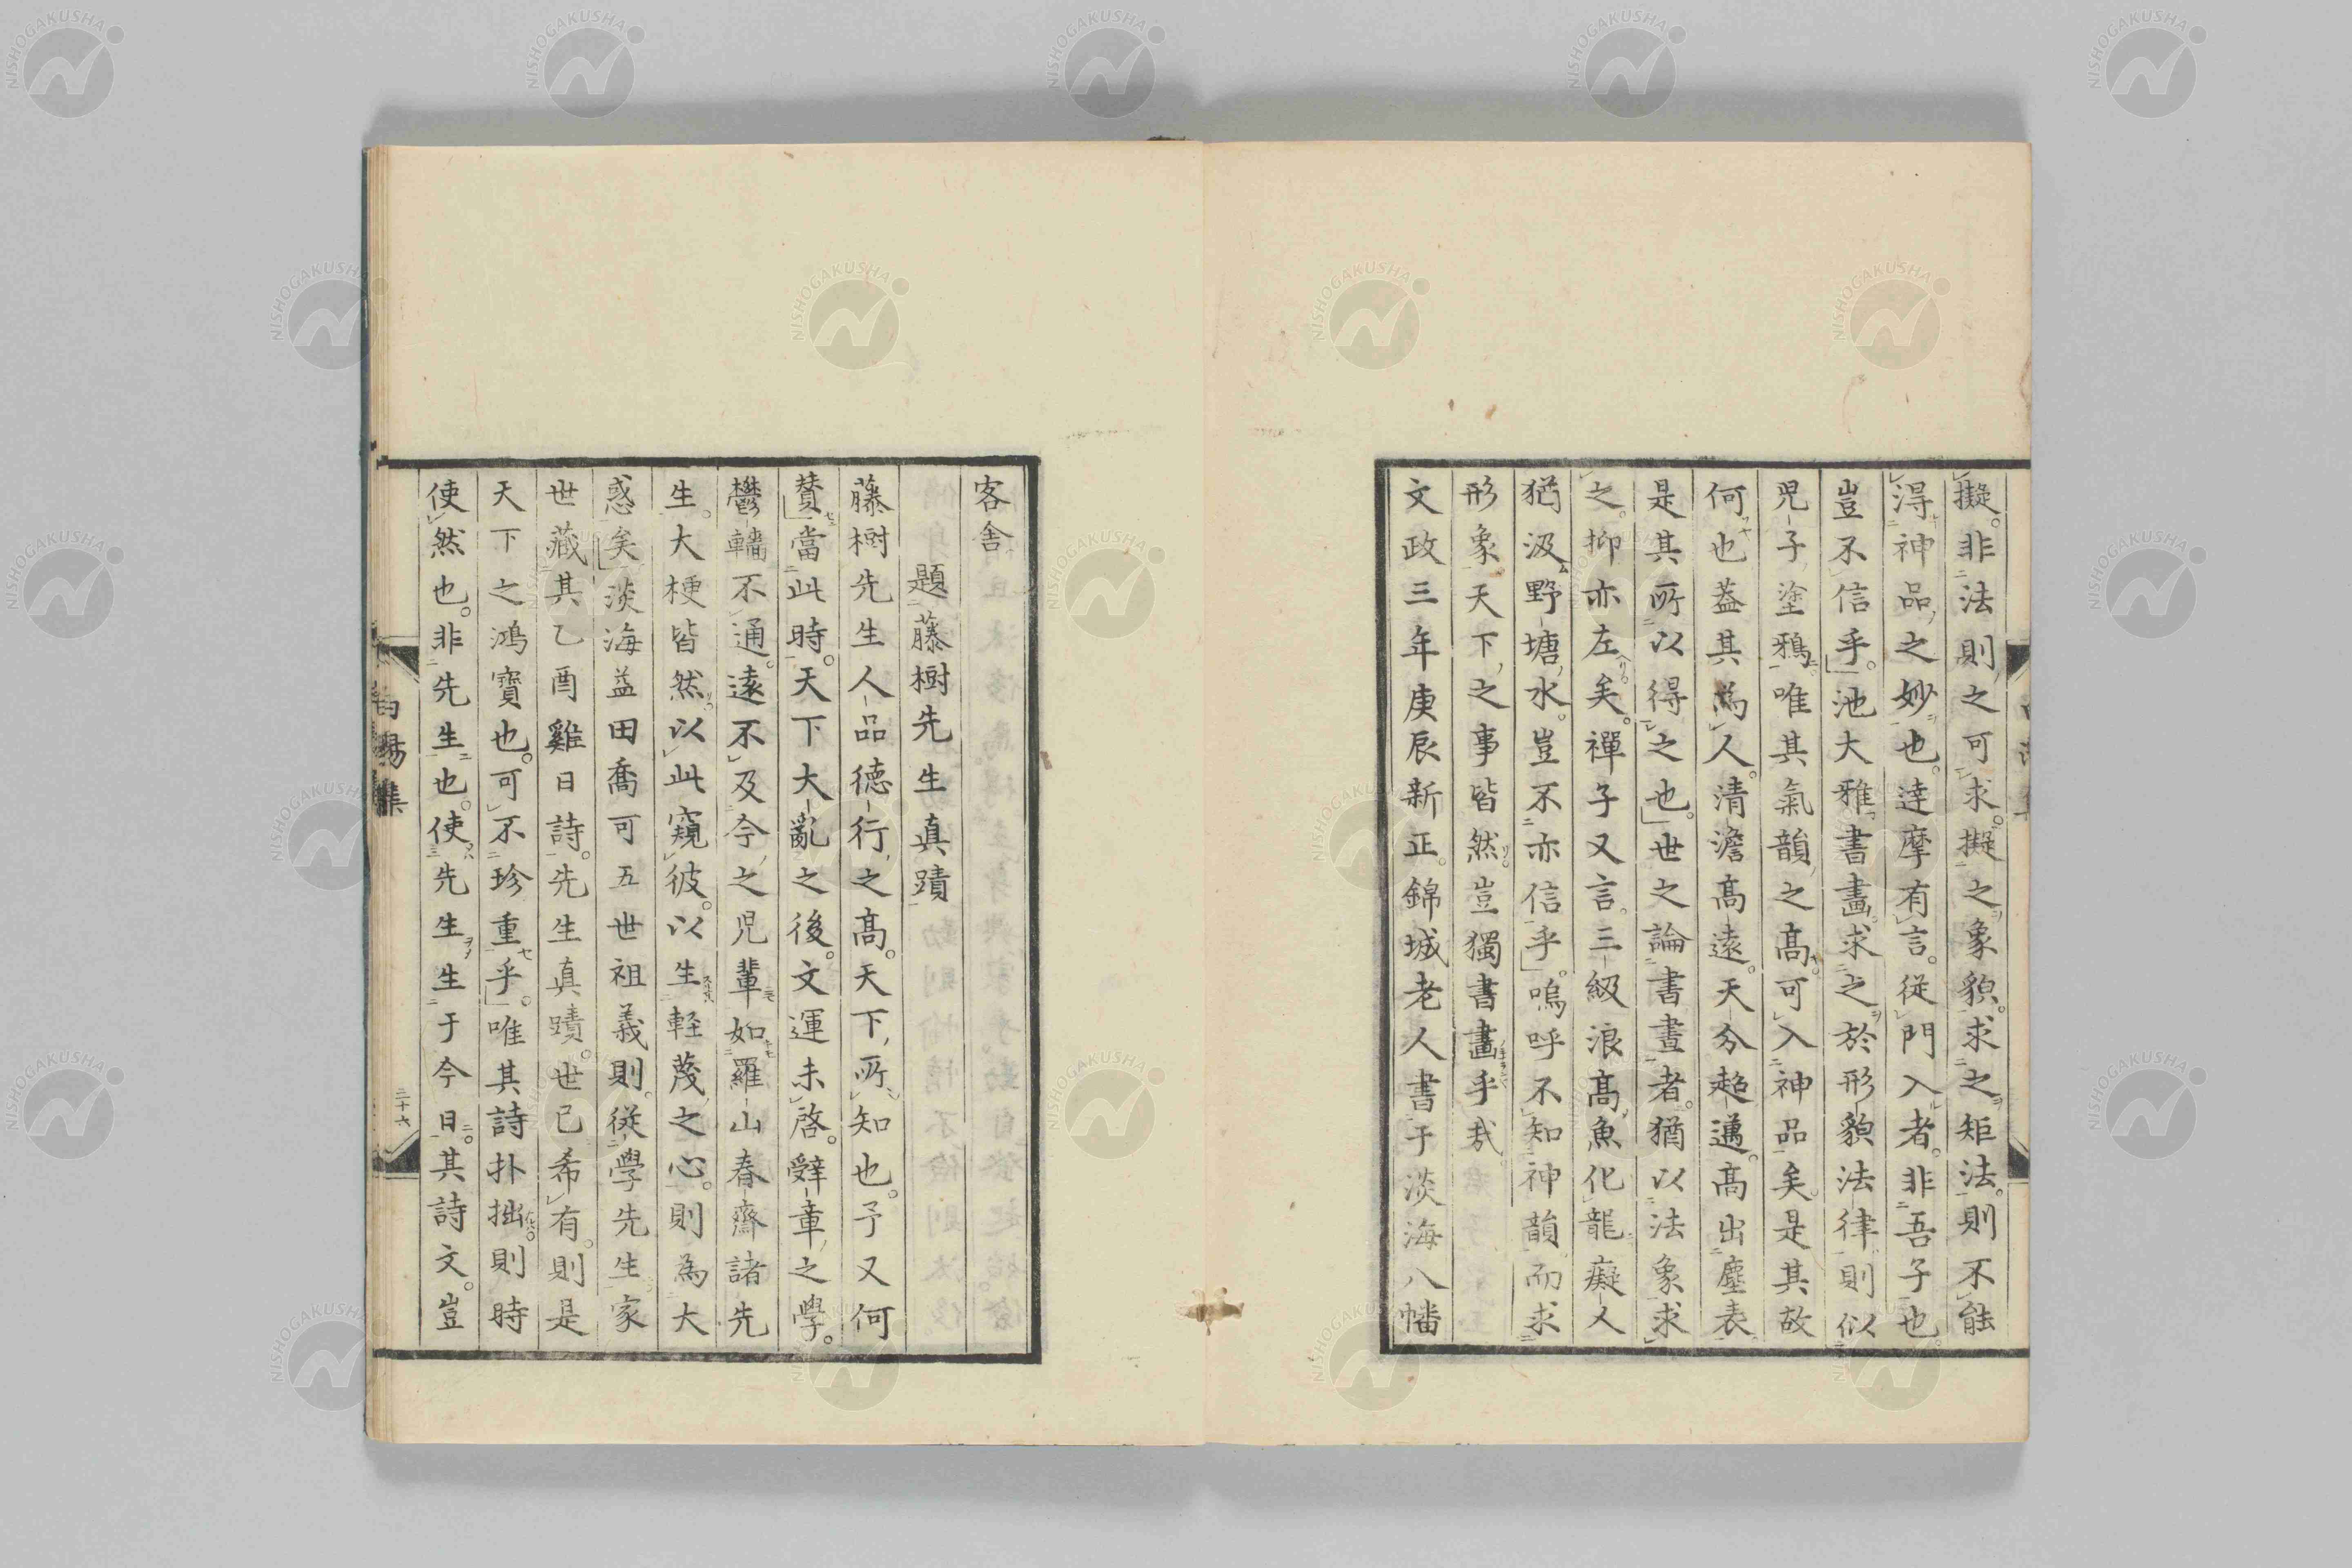 擬。非法則之可求。擬之象貌。求之矩法。則不能
得神品之妙也。達摩有言。従門入者。非吾子也。
豈不信乎。池大雅書畫。求之於形貌法律則似
児子塗鴉。唯其氣韻之高可入神品矣。是其故
何也蓋其為人。清澹高遠。天分超邁。高出塵表。
是其所以得之也。世之論書畫者。猶以法象求
之。抑亦左矣。禪子又言。三級浪高魚化龍癡人
猶汲野塘水。豈不亦信乎。嗚呼不知神韻而求
形象天下之事皆然。豈獨書畫乎哉
文政三年庚辰新正。錦城老人書于淡海八幡
客舎
題藤樹先生真蹟
藤樹先生人品德行之高。天下所知也。予又何
賛當此時。天下大亂之後。文運未啓。辭章之學。
鬱轖不通。遠不及今之児輩如羅山春齋諸先
生。大梗皆然。以此窺彼。以生軽蔑之心。則為大
惑矣淡海益田喬可五世祖義則。従學先生家
世藏其乙酉雞日詩。先生真蹟。世已希有。則是
天下之鴻寶也。可不珍重乎。唯其詩朴拙。則時
使然也。非先生也。使先生生于今日。其詩文。豈
二十六